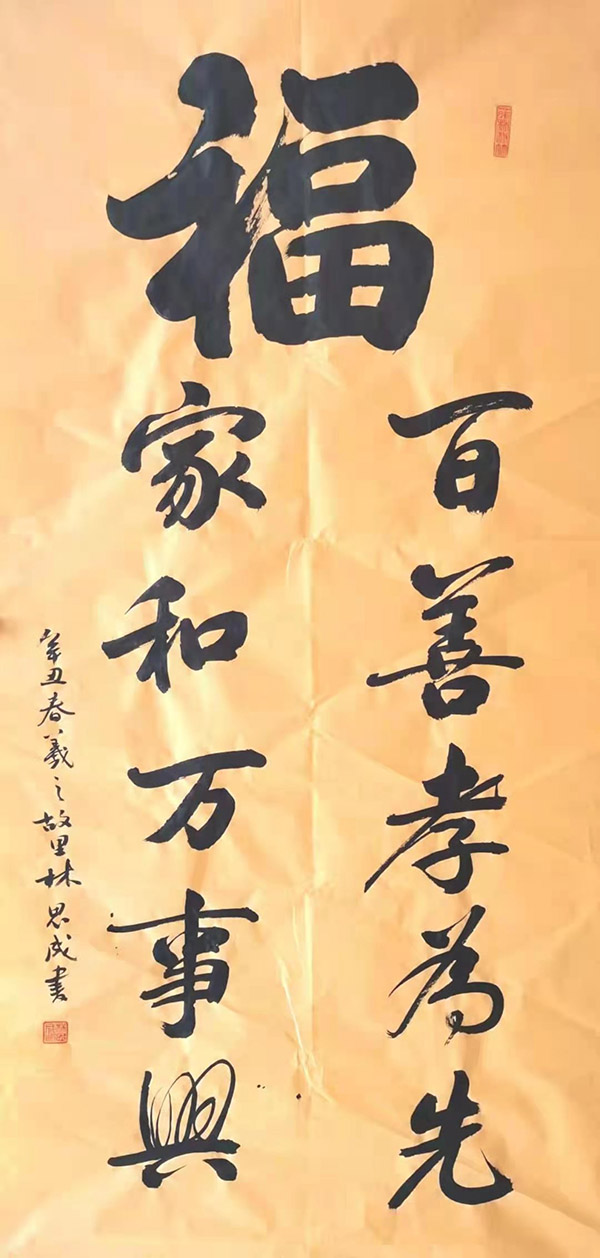 福
百善孝為先
家和万事興
辛丑春羲之故里林思成書